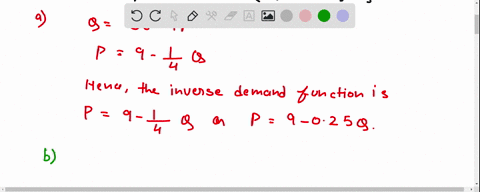 a) Q =
P = 9 - 1/4 Q
Hence, the inverse demand function is
P = 9 - 1/4 Q or P = 9 - 0.25Q.
b)